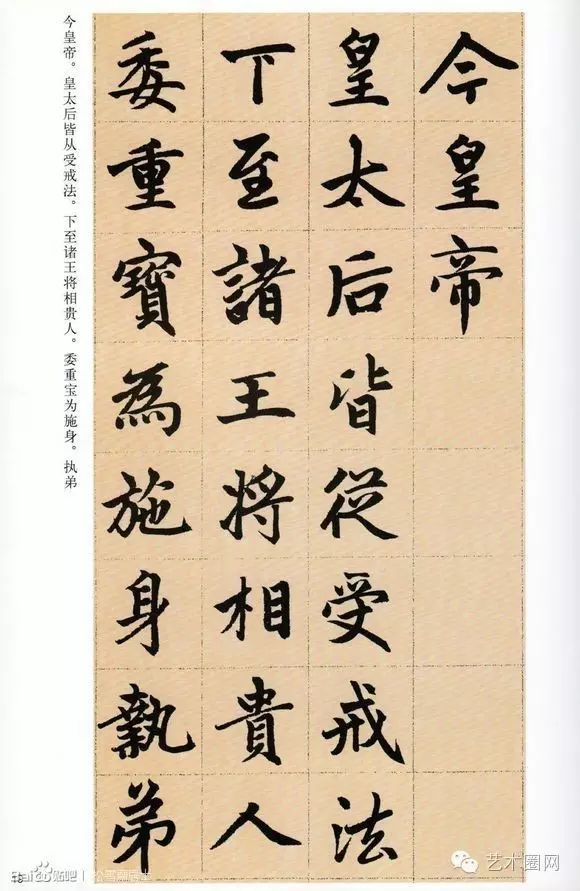 今皇帝
皇太后皆從受戒法
下至諸王將相貴人
委重寶為施身執弟
今皇帝。皇太后皆从受戒法。下至诸王将相贵人。委重宝为施身。执弟
艺术圈网
贴吧